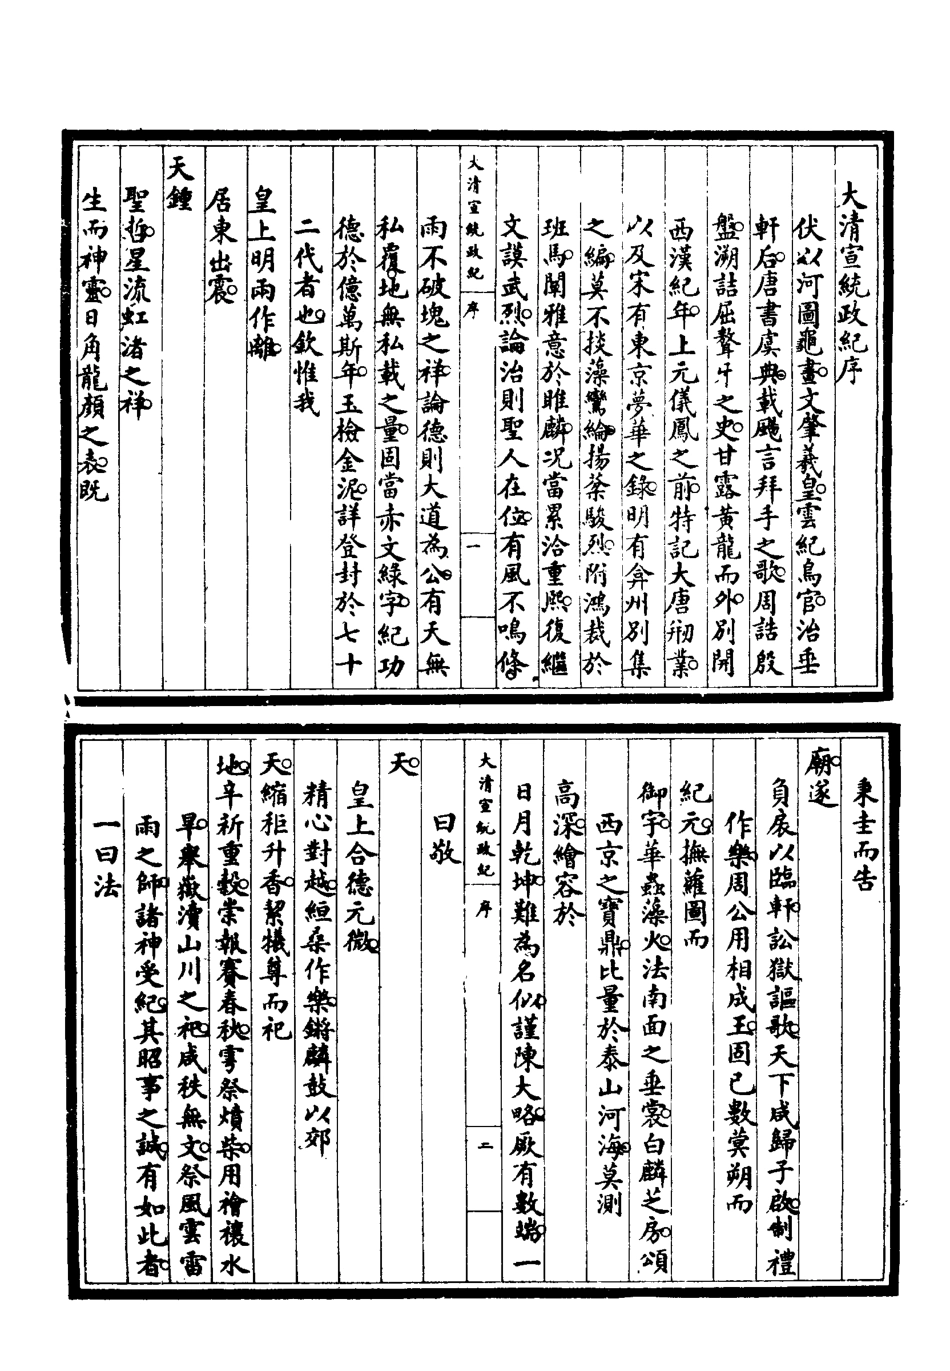 大清宣統政紀序
伏以河圖龜畫。文肇羲皇。雲紀鳥官。治垂
軒后。唐書虞典。載颺言拜手之歌。周誥殷
盤。溯詰屈聱牙之史。甘露黃龍而外。別開
西漢紀年。上元儀鳳之前。特記大唐剏業。
以及宋有東京夢華之錄。明有弇州別集
之編。莫不掞藻鸞綸。揚葇駿烈。附鴻裁於
班馬。闡雅意於睢麟。况當累洽重熙。復繼
文謨武烈。論治則聖人在位。有風不鳴條。
大清宣統政紀 序 一
雨不破塊之祥。論德則大道為公。有天無
私覆。地無私載之量。固當赤文綠字。紀功
德於億萬斯年。玉檢金泥。詳登封於七十
二代者也。欽惟我
皇上明兩作離。
居東出震。
天鍾
聖哲。星流虹渚之祥。
生而神靈。日角龍顏之表。既
秉圭而告
廟。遂
負扆以臨軒。訟獄謳歌。天下咸歸子啟。制禮
作樂。周公用相成王。固已數蓂朔而
紀元。撫蘿圖而
御宇。華蟲藻火。法南面之垂裳。白麟芝房。頌
西京之寶鼎。比量於泰山河海。莫測
高深。繪容於
日月乾坤。難為名似。謹陳大略。厥有數端。一
大清宣統政紀 序 二
曰敬
天。
皇上合德元微。
精心對越。絙桑作樂。鏘麟鼓以郊
天。縮秬升香。絜犧尊而祀
地。辛祈重穀。崇報賽春秋。雩祭燔柴。用禬禳水
旱。舉嶽瀆山川之祀。咸秩無文。祭風雲雷
雨之師。諸神受紀。其昭事之誠。有如此者。
一曰法